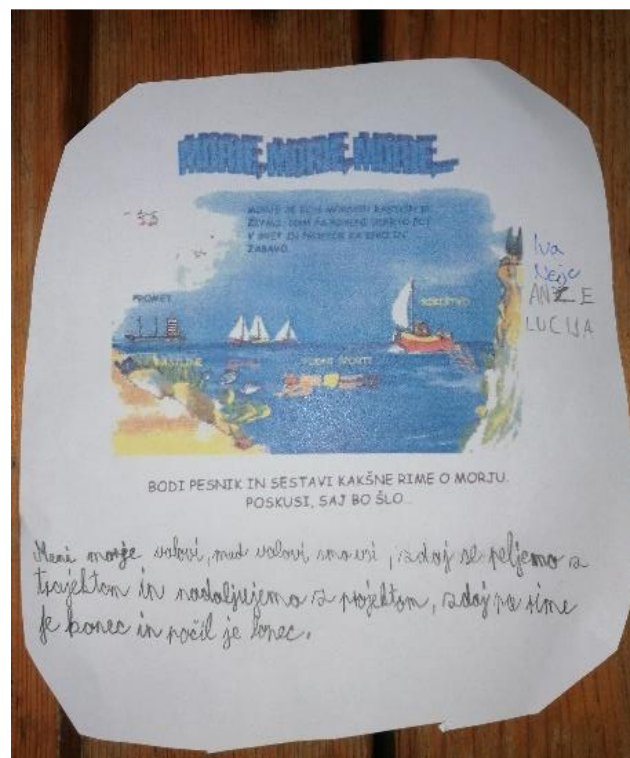 MORJE, MORJE, MORJE...
MORJE JE DOM MORSKIH RASTLIN IN
ŽIVALI
V SVET IN PROSTOR ZA
ZABAVO.
PROMET
RIBIŠTVO
VODNI ŠPORTI
Iva
Nejc
ANŽE
LUCIJA
BODI PESNIK IN SESTAVI KAKŠNE RIME O MORJU.
POSKUSI, SAJ BO ŠLO...
morje valovi, med valovi smo vsi, zdaj se peljemo s
trajektom in nadaljujemo s projektom, zdaj pa rime
je konec in počil je lonec.